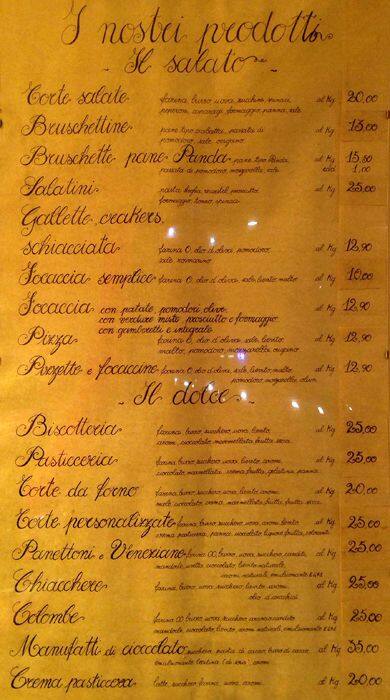 I nostri prodotti
Il salato
Torte salate farina, burro, uova, zucchero, spinaci, al Kg 20,00
peperoni, asparagi, formaggio, panna, sale
Bruschettine pane tipo al Kg 15,00
pomodoro, sale, origano
Bruschette pane Panda pane tipo Panda, al Kg 15,50
passata di pomodoro, mozzarella, sale cad 1,00
Salatini pasta sfoglia, wurstel, prosciutto, al Kg 25,00
formaggio, tonno, spinaci
Gallette, crakers,
schiacciata farina 0, olio d'oliva, pomodoro, al Kg 12,90
sale, rosmarino
Focaccia semplice farina 0, olio d'oliva, sale, lievito, malto al Kg 10,00
Focaccia con patate, pomodori, olive, al Kg 12,90
con verdure miste, prosciutto e formaggio
con gamberetti e integrale
Pizza farina 0, olio d'oliva, sale, lievito, al Kg 12,90
malto, pomodoro, mozzarella, origano
Pizzette e focaccine farina 0, olio d'oliva, sale, lievito, malto, al Kg 12,90
pomodoro, mozzarella, olive
Il dolce
Biscotteria farina, burro, uova, zucchero, lievito, al Kg 25,00
aromi, cioccolato, marmellata, frutta secca
Pasticceria farina, burro, zucchero, uova, lievito, aromi, al Kg 25,00
cioccolato, marmellata, crema, frutta, gelatina, panna
Torte da forno farina, burro, zucchero, uova, lievito, aromi, al Kg 20,00
cioccolato, crema, marmellata, frutta, frutta secca
Torte personalizzate farina, burro, zucchero, uova, aromi, lievito al Kg 25,00
crema pasticcera, panna, cioccolato, liquori, frutta, coloranti
Panettoni e Veneziane farina 00, burro, uova, zucchero, canditi, al Kg 25,00
mandorle, uvetta, cioccolato, lievito naturale,
aromi naturali, emulsionante E471
Chiacchere farina, burro, zucchero, uova, lievito, aromi, al Kg 25,00
olio d'arachidi
Colombe farina 00, burro, uova, zucchero, arancio candito al Kg 25,00
mandorle, cioccolato, lievito, aromi naturali, emulsionante E471
Manufatti di cioccolato zucchero, pasta di cacao, burro di cacao al Kg 35,00
emulsionante lecitina (di soia), aromi
Crema pasticcera latte, zucchero, farina, uova, aromi al Kg 20,00